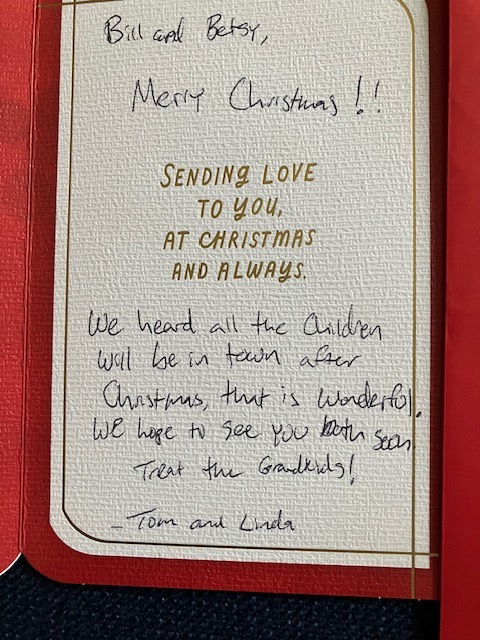 Bill and Betsy,
Merry Christmas!!
SENDING LOVE
TO YOU,
AT CHRISTMAS
AND ALWAYS.
We heard all the Children
will be in town after
Christmas, that is wonderful.
WE hope to see you both soon
Treat the Grandkids!
- Tom and Linda